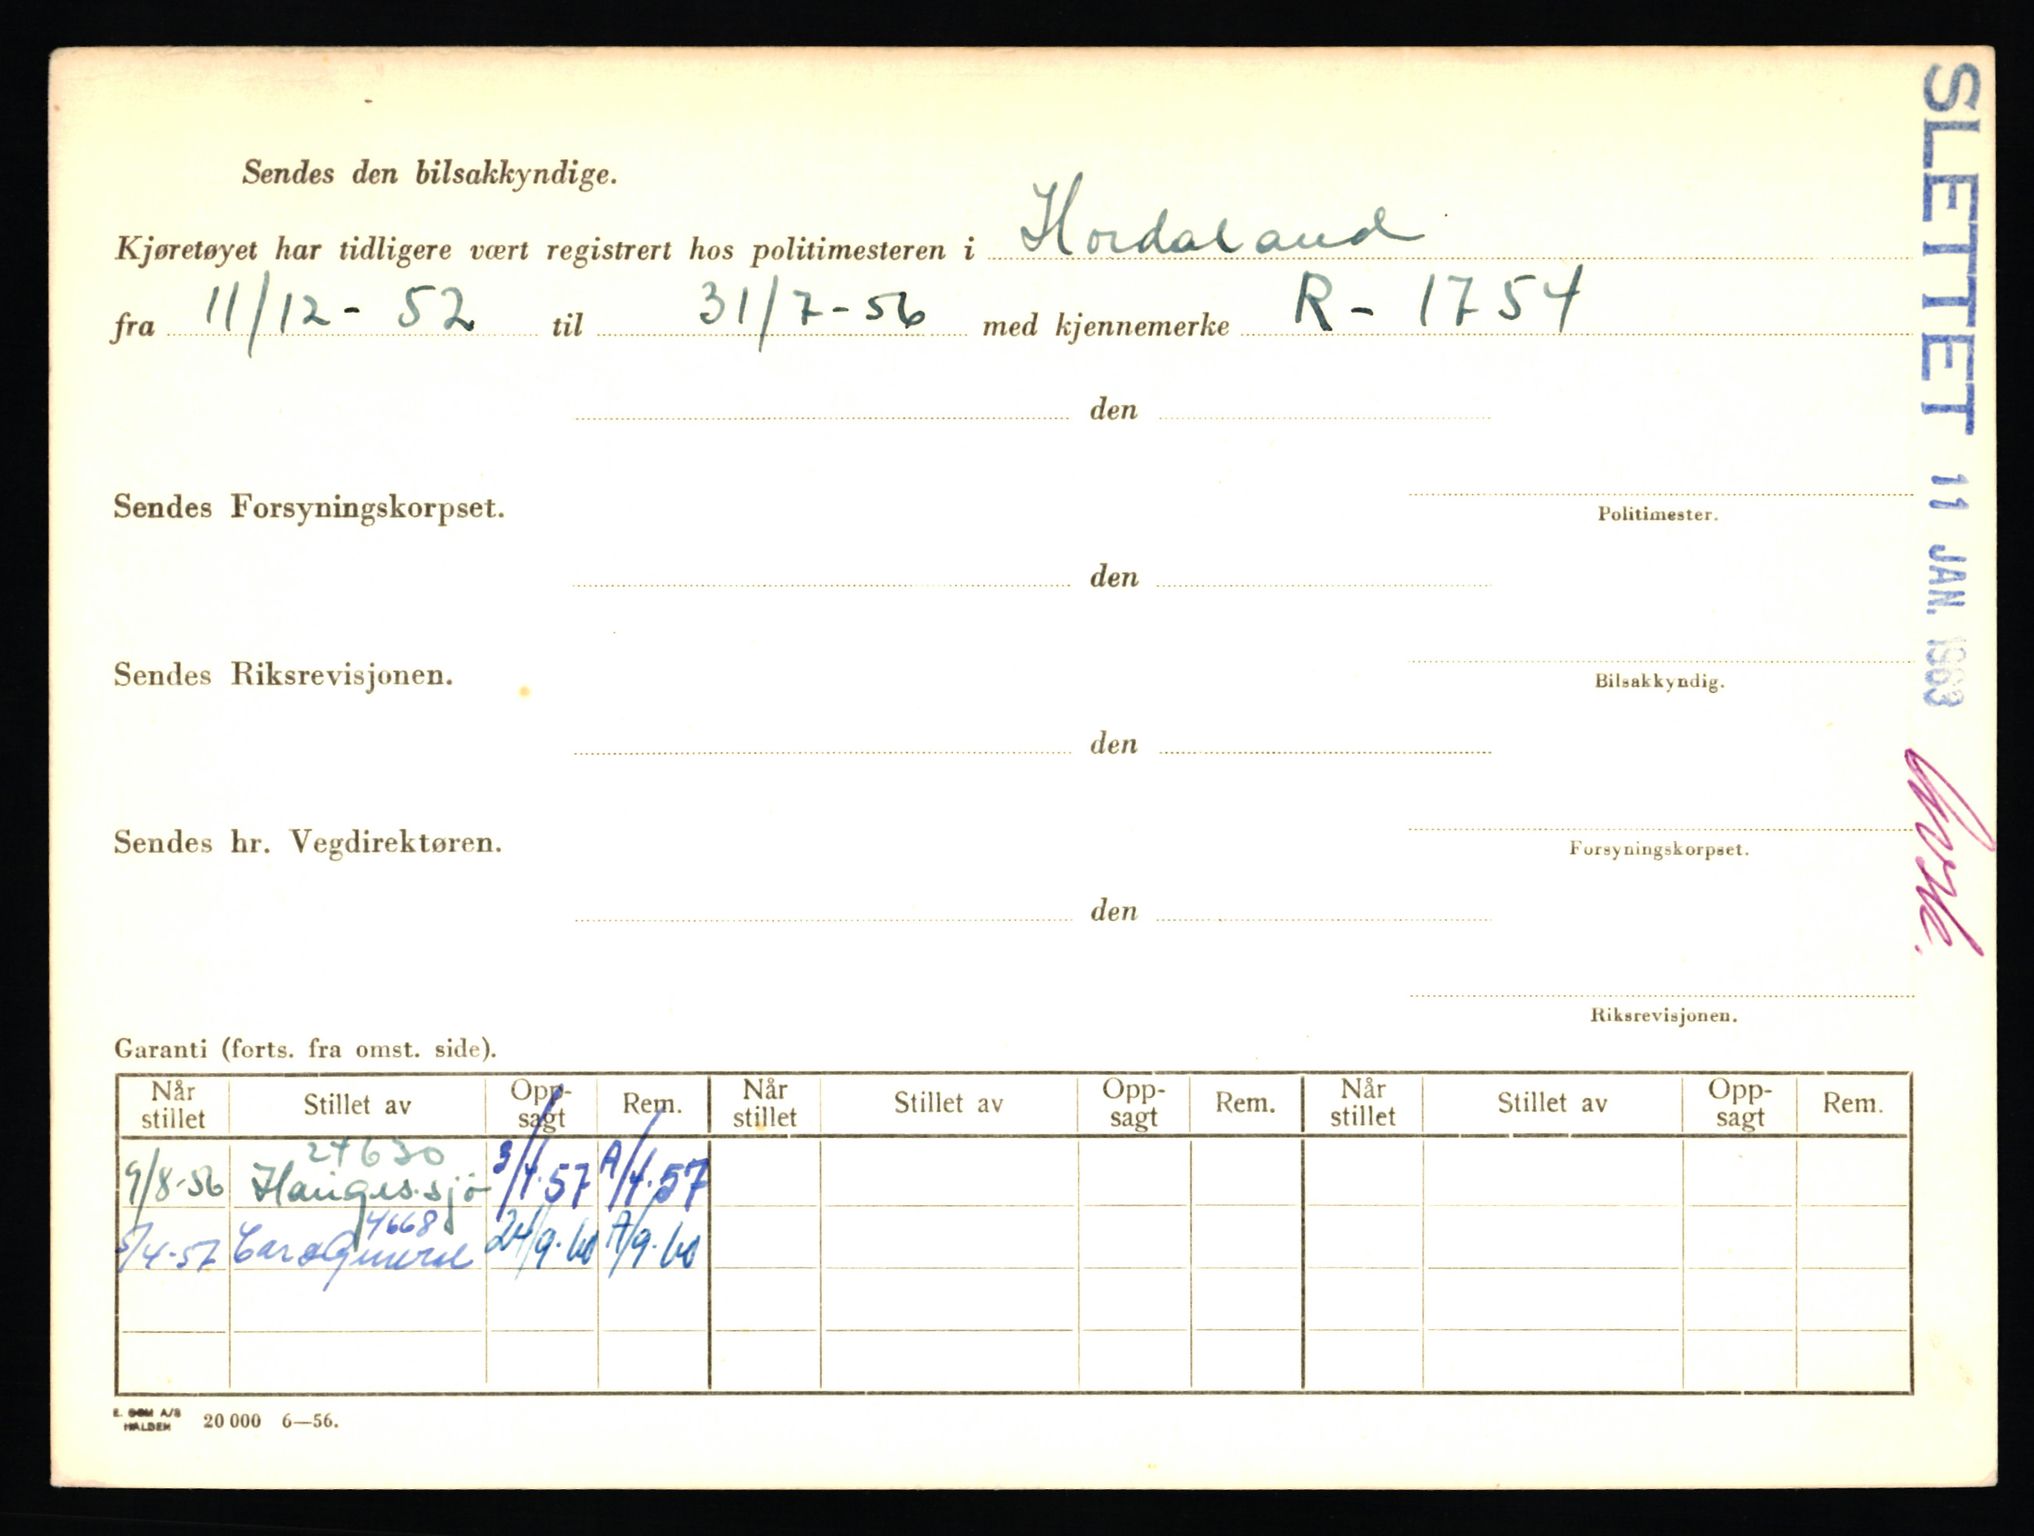 SLETTET 11 JAN. 1963
Sendes den bilsakkyndige.
Kjøretøyet har tidligere vært registrert hos politimesteren i Hordaland
fra 11/12 - 52 til 31/7 - 56 med kjennemerke R - 1754
den
Sendes Forsyningskorpset.
Politimester.
den
Sendes Riksrevisjonen.
Bilsakkyndig.
den
Sendes hr. Vegdirektøren.
Forsyningskorpset.
den
Riksrevisjonen.
Garanti (forts. fra omst. side).
Når stillet Stillet av Opp-sagt Rem. Når stillet Stillet av Opp-sagt Rem. Når stillet Stillet av Opp-sagt Rem.
24630
9/8-56 Hauges.sjø 3/4-57 A/4-57
4668
5/4-57 24/9-60 A/9-60
E. SEM A/S
HALDEN
20 000 6—56.